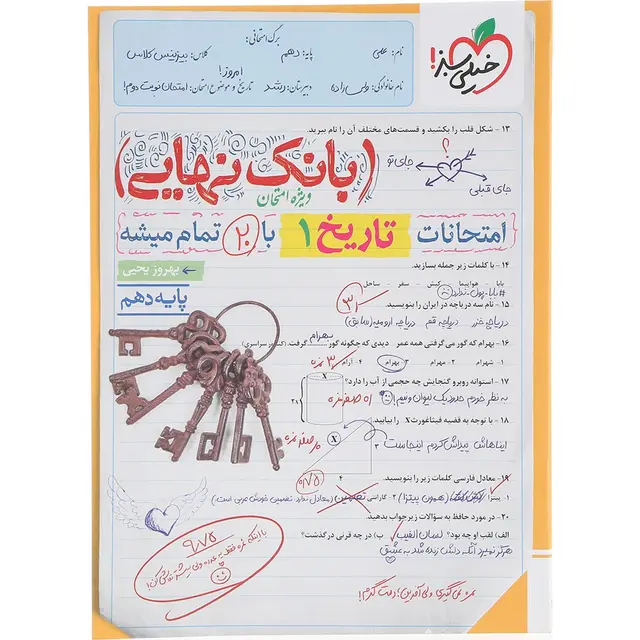 برگ امتحانی:
نام: علی
پایه: دهم
کلاس: بیزینس کلاس
نام خانوادگی: ولی زاده
دبیرستان: رشد
تاریخ و موضوع امتحان: امروز! امتحان نوبت دوم!
خیلی سبز!
۱۳ - شکل قلب را بکشید و قسمت‌های مختلف آن را نام ببرید.
(بانک نهایی)
ویژه امتحان
جای تو
جای قبلی
امتحانات تاریخ ۱ با ۲۰ تمام میشه
۱۴ - با کلمات زیر جمله بسازید.
بابا - هواپیما - کیش - سفر - ساحل
#بابا_پول_نداره
بهروز یحیی
پایه دهم
۱۵ - نام سه دریاچه در ایران را بنویسید.
دریاچه خزر دریاچه قم دریاچه ارومیه (سابق)
۱۶ - بهرام که گور می گرفتی همه عمر دیدی که چگونه گور بهرام گرفت.
۱ - شهرام ۲ - مهرام ۳ - بهرام ۴ - آرام
۱۷ - استوانه روبرو گنجایش چه حجمی از آب را دارد؟
به نظر خودم حدود یک لیوان و نیم!
۱۸ - با توجه به قضیه فیثاغورث X را بیابید.
ایناهاش پیداش کردم اینجاست
۱۹ - معادل فارسی کلمات زیر را بنویسید.
۱ - پیتزا (همون پیتزا) ۲ - گارانتی تضمین (معادل ندارد. تضمین خودش عربی است.)
۲۰ - در مورد حافظ به سؤالات زیر جواب بدهید.
الف) لقب او چه بود؟ لسان الغیب ب) در چه قرنی درگذشت؟
هرگز نمیرد آنکه دلش زنده شد به عشق
۹/۷۵
نمره نمی‌گیری ولی آفرین؛ دمت گرم!